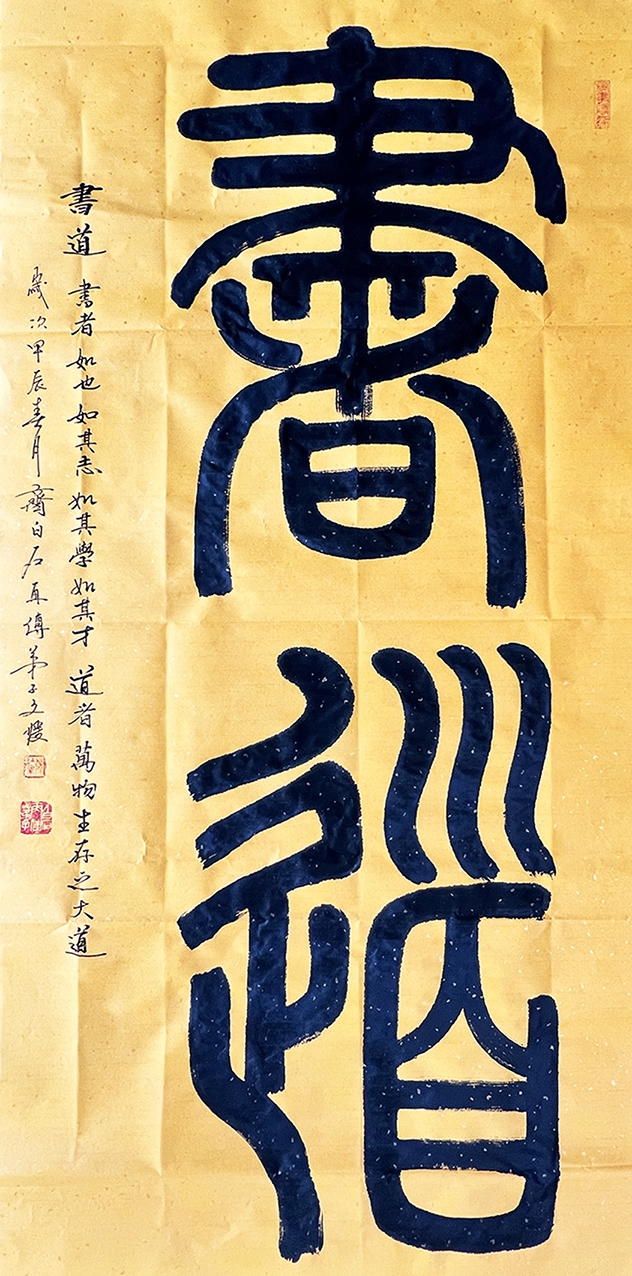 書道
書道 書者如也如其志如其學如其才 道者萬物生存之大道
歲次甲辰春月齊白石再傳弟子文煖